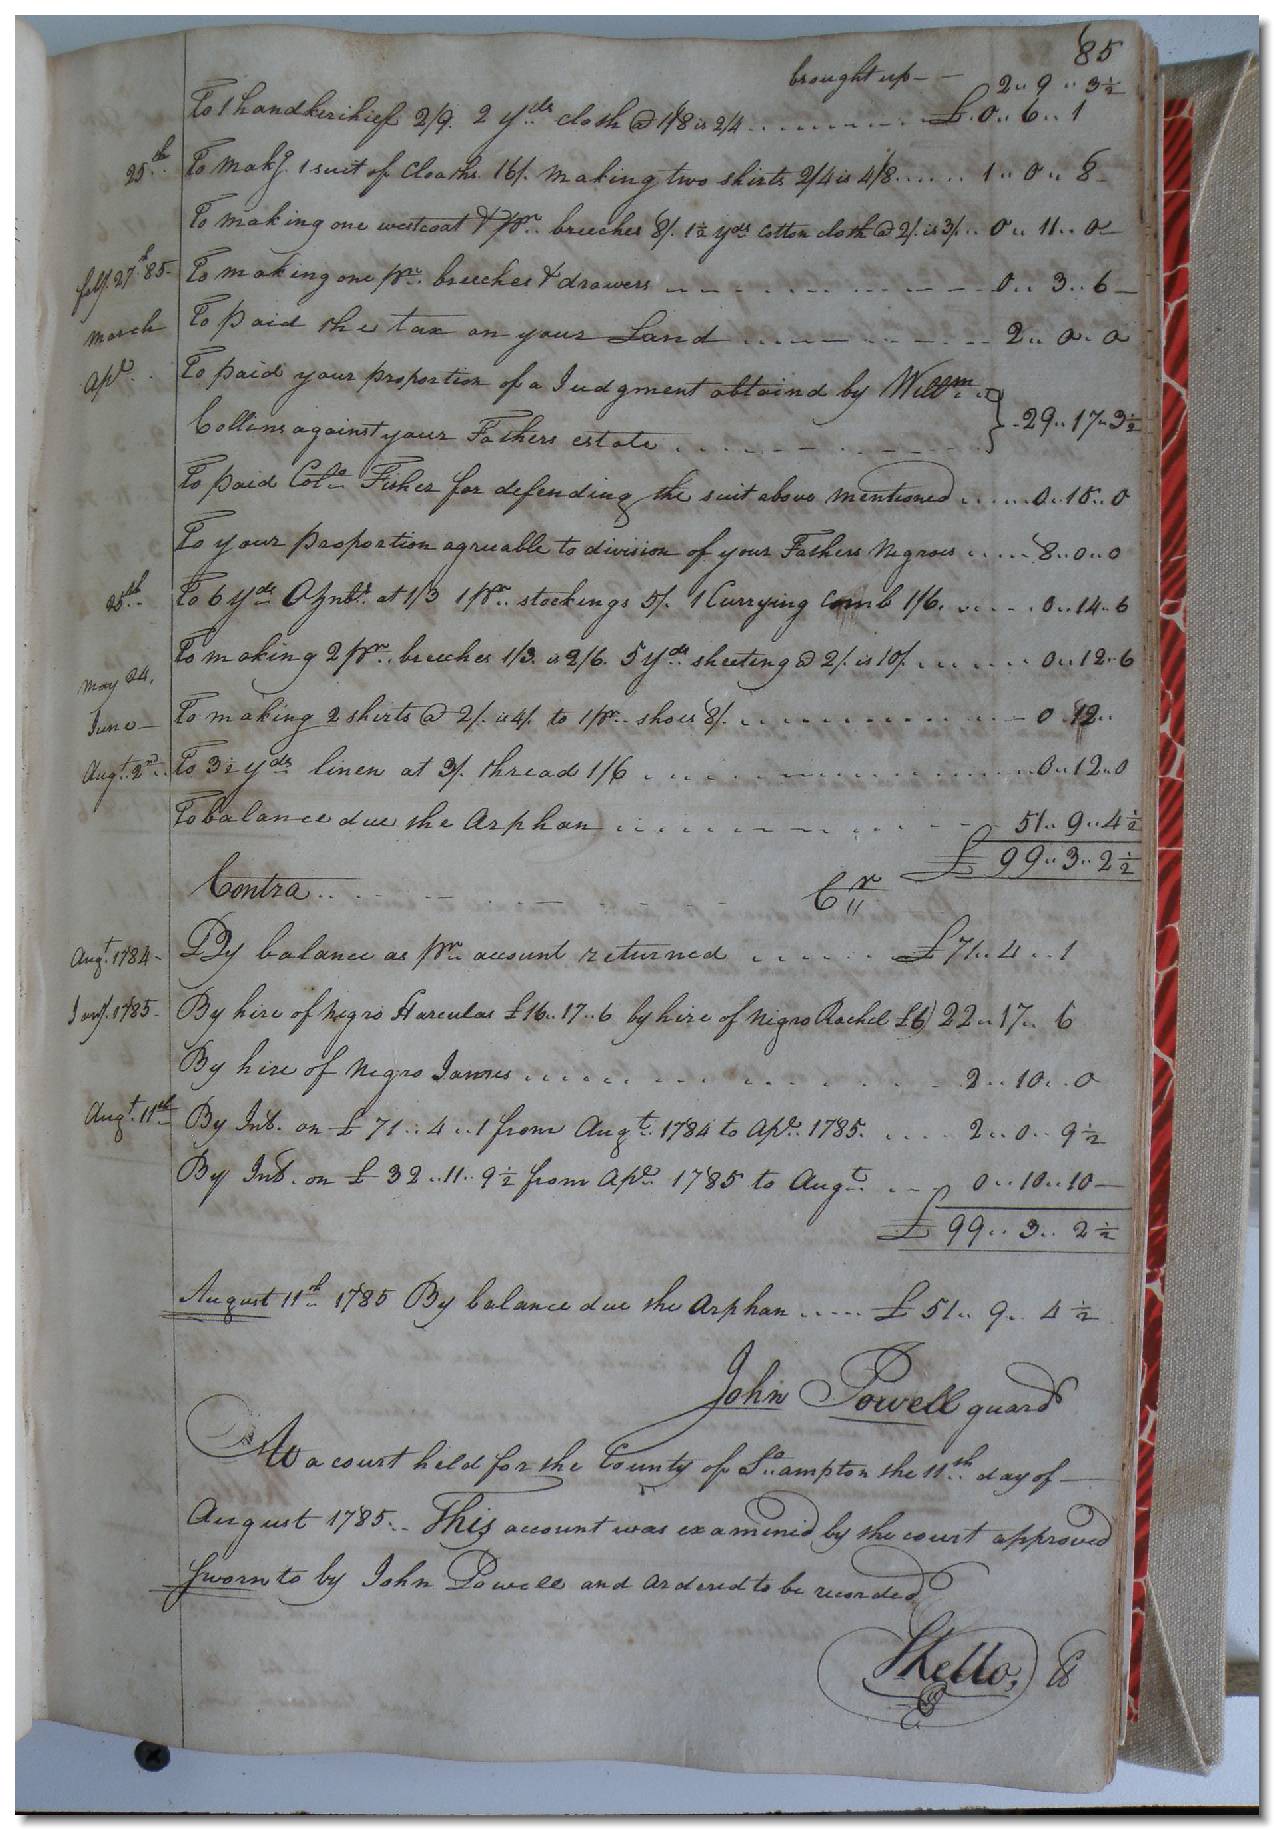 85
brought up - - 2..9..3½
To 1 handkerihief 2/9. 2 yds cloth @ 1/8 is 2/4 ........ £.0..6..1
25th To makg. 1 suit of Cloaths 16/. making two shirts 2/4 is 4/8...... 1..0..8
To making one westcoat & pr.. breeches 8/. 1½ yds cotton cloth @ 2/. is 3/.. 0..11..0
feby. 27th 85 To making one pr.. breeches & drawers ........ 0..3..6
March To paid the tax on your Land ........ 2..0..0
Apl. To paid your proportion of a Judgment obtaind by Willm.
Collins against your Fathers estate ........ 29..17..3½
To paid Colo. Fisher for defending the suit above mentioned ..... 0..15..0
To your proportion agreeable to division of your Fathers Negroes ..... 8..0..0
25th To 6 yds Oznbs. at 1/3 1 pr.. stockings 5/. 1 Currying comb 1/6. ..... 0..14..6
To making 2 pr.. breeches 1/3. is 2/6. 5 yds sheeting @ 2/. is 10/. ..... 0..12..6
May 24,
June To making 2 shirts @ 2/. is 4/. to 1 pr.. shoes 8/. ........ 0 12..
Augt. 2nd.. To 3½ yds linen at 3/. thread 1/6 ........ 0..12..0
To balance due the Orphan ........ 51..9..4½
£ 99..3..2½
Contra .. ........ Cr
Augt. 1784 By balance as pr.. account returned ....... £71..4..1
Jany. 1785 By hire of Negro Harculas £16..17..6 by hire of Negro Rachel £6) 22..17..6
By hire of Negro James ........ 2..10..0
Augt. 11th By Int. on £ 71..4..1 from Augt. 1784 to Apl.. 1785. .... 2..0..9½
By Int. on £ 32..11..9½ from Apl. 1785 to Augt. .. 0..10..10
£ 99..3..2½
August 11th 1785 By balance due the Orphan ..... £ 51..9..4½
John Powell guard
At a court held for the County of So.ampton the 11th day of
August 1785.. This account was examined by the court approved
sworn to by John Powell and ordered to be recorded
SKello, CC